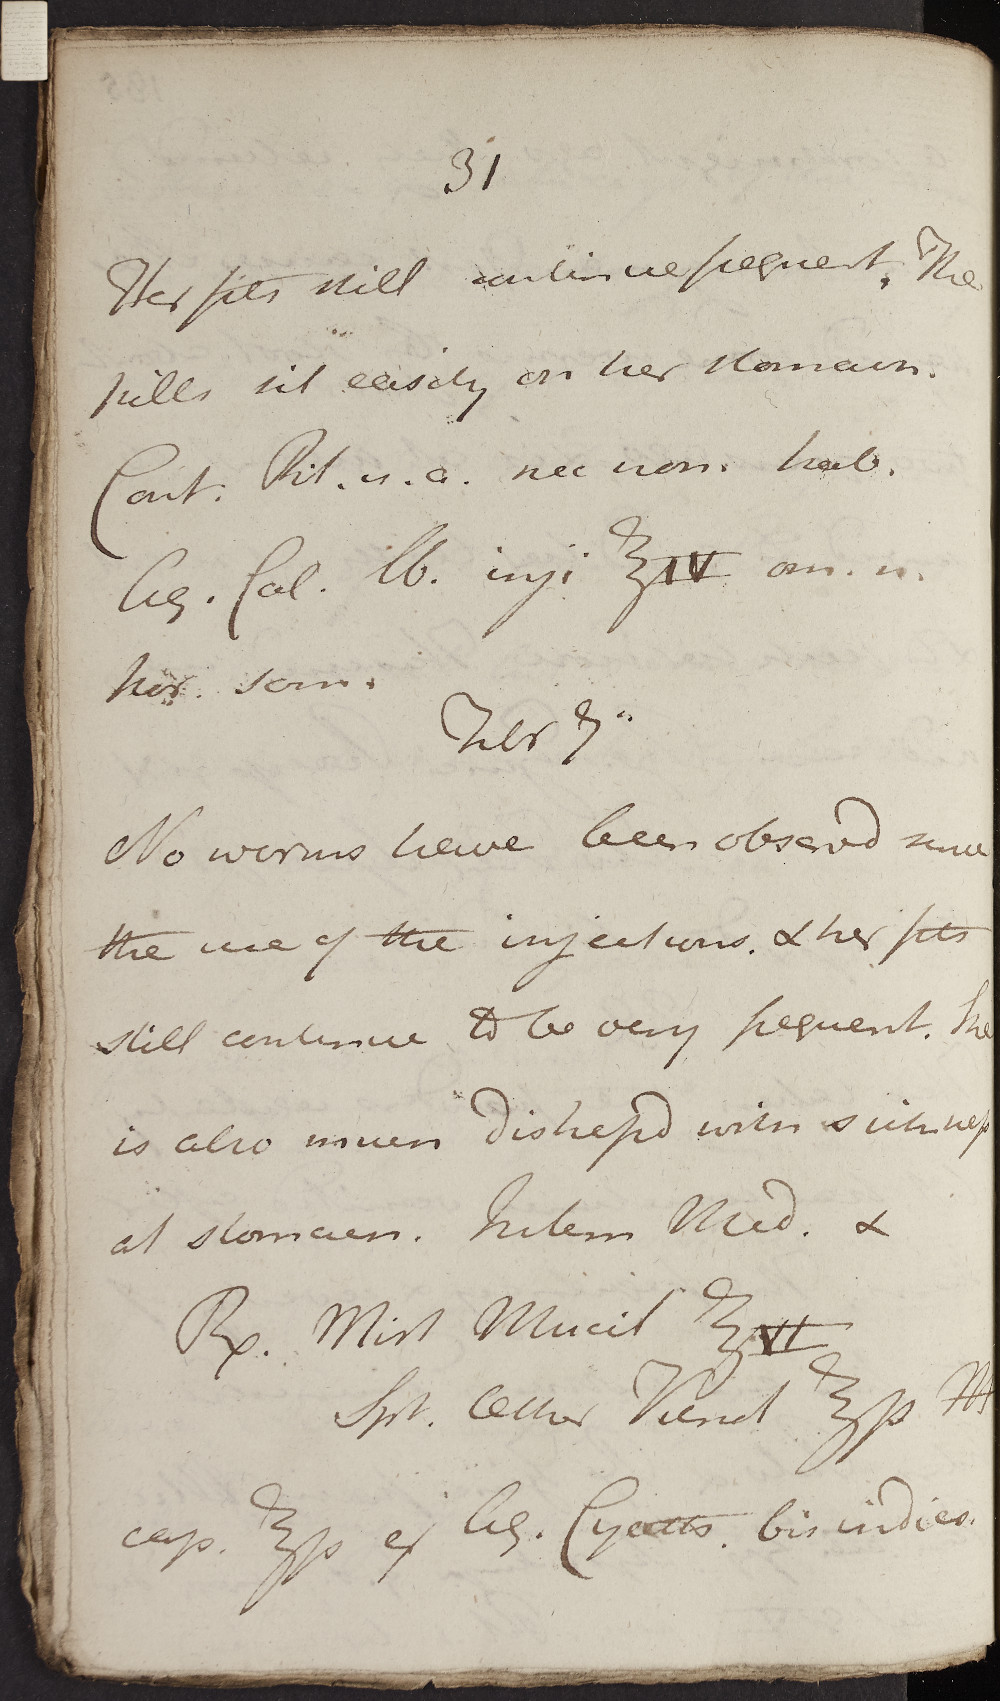 31
Her fits still continue frequent. The
pills sit easily on her stomach.
Cont. Pil. u. a. nec non. hab.
Aq. Cal. lb. inji ℥IV om. n.
hor. som.
Febr 7"
No worms have been observd since
the use of the injections. & her fits
still continue to be very frequent. She
is also much distressd with sickness
at stomach. Med. &
Rx. Mist Mucil ℥VI
Spt. Æther Vitriol ℥ss M
cap. ℥ss ex Aq. Cyath. bis indies.